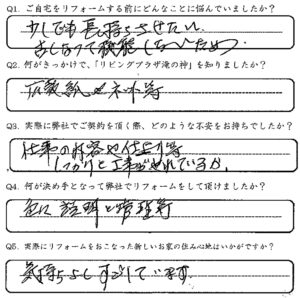 Q1. ご自宅をリフォームする前にどんなことに悩んでいましたか?
少しでも長持ちさせたい。
Q2. 何がきっかけで、「リビングプラザ滝の神」を知りましたか?
広告紙やネット等
Q3. 実際に弊社でご契約を頂く際、どのような不安をお持ちでしたか?
仕事の内容や仕上り等
しっかりと工事がされているか。
Q4. 何が決め手となって弊社でリフォームをして頂けましたか?
説明と管理等
Q5. 実際にリフォームをおこなった新しいお家の住み心地はいかがですか?
気持ちよくすごしています。